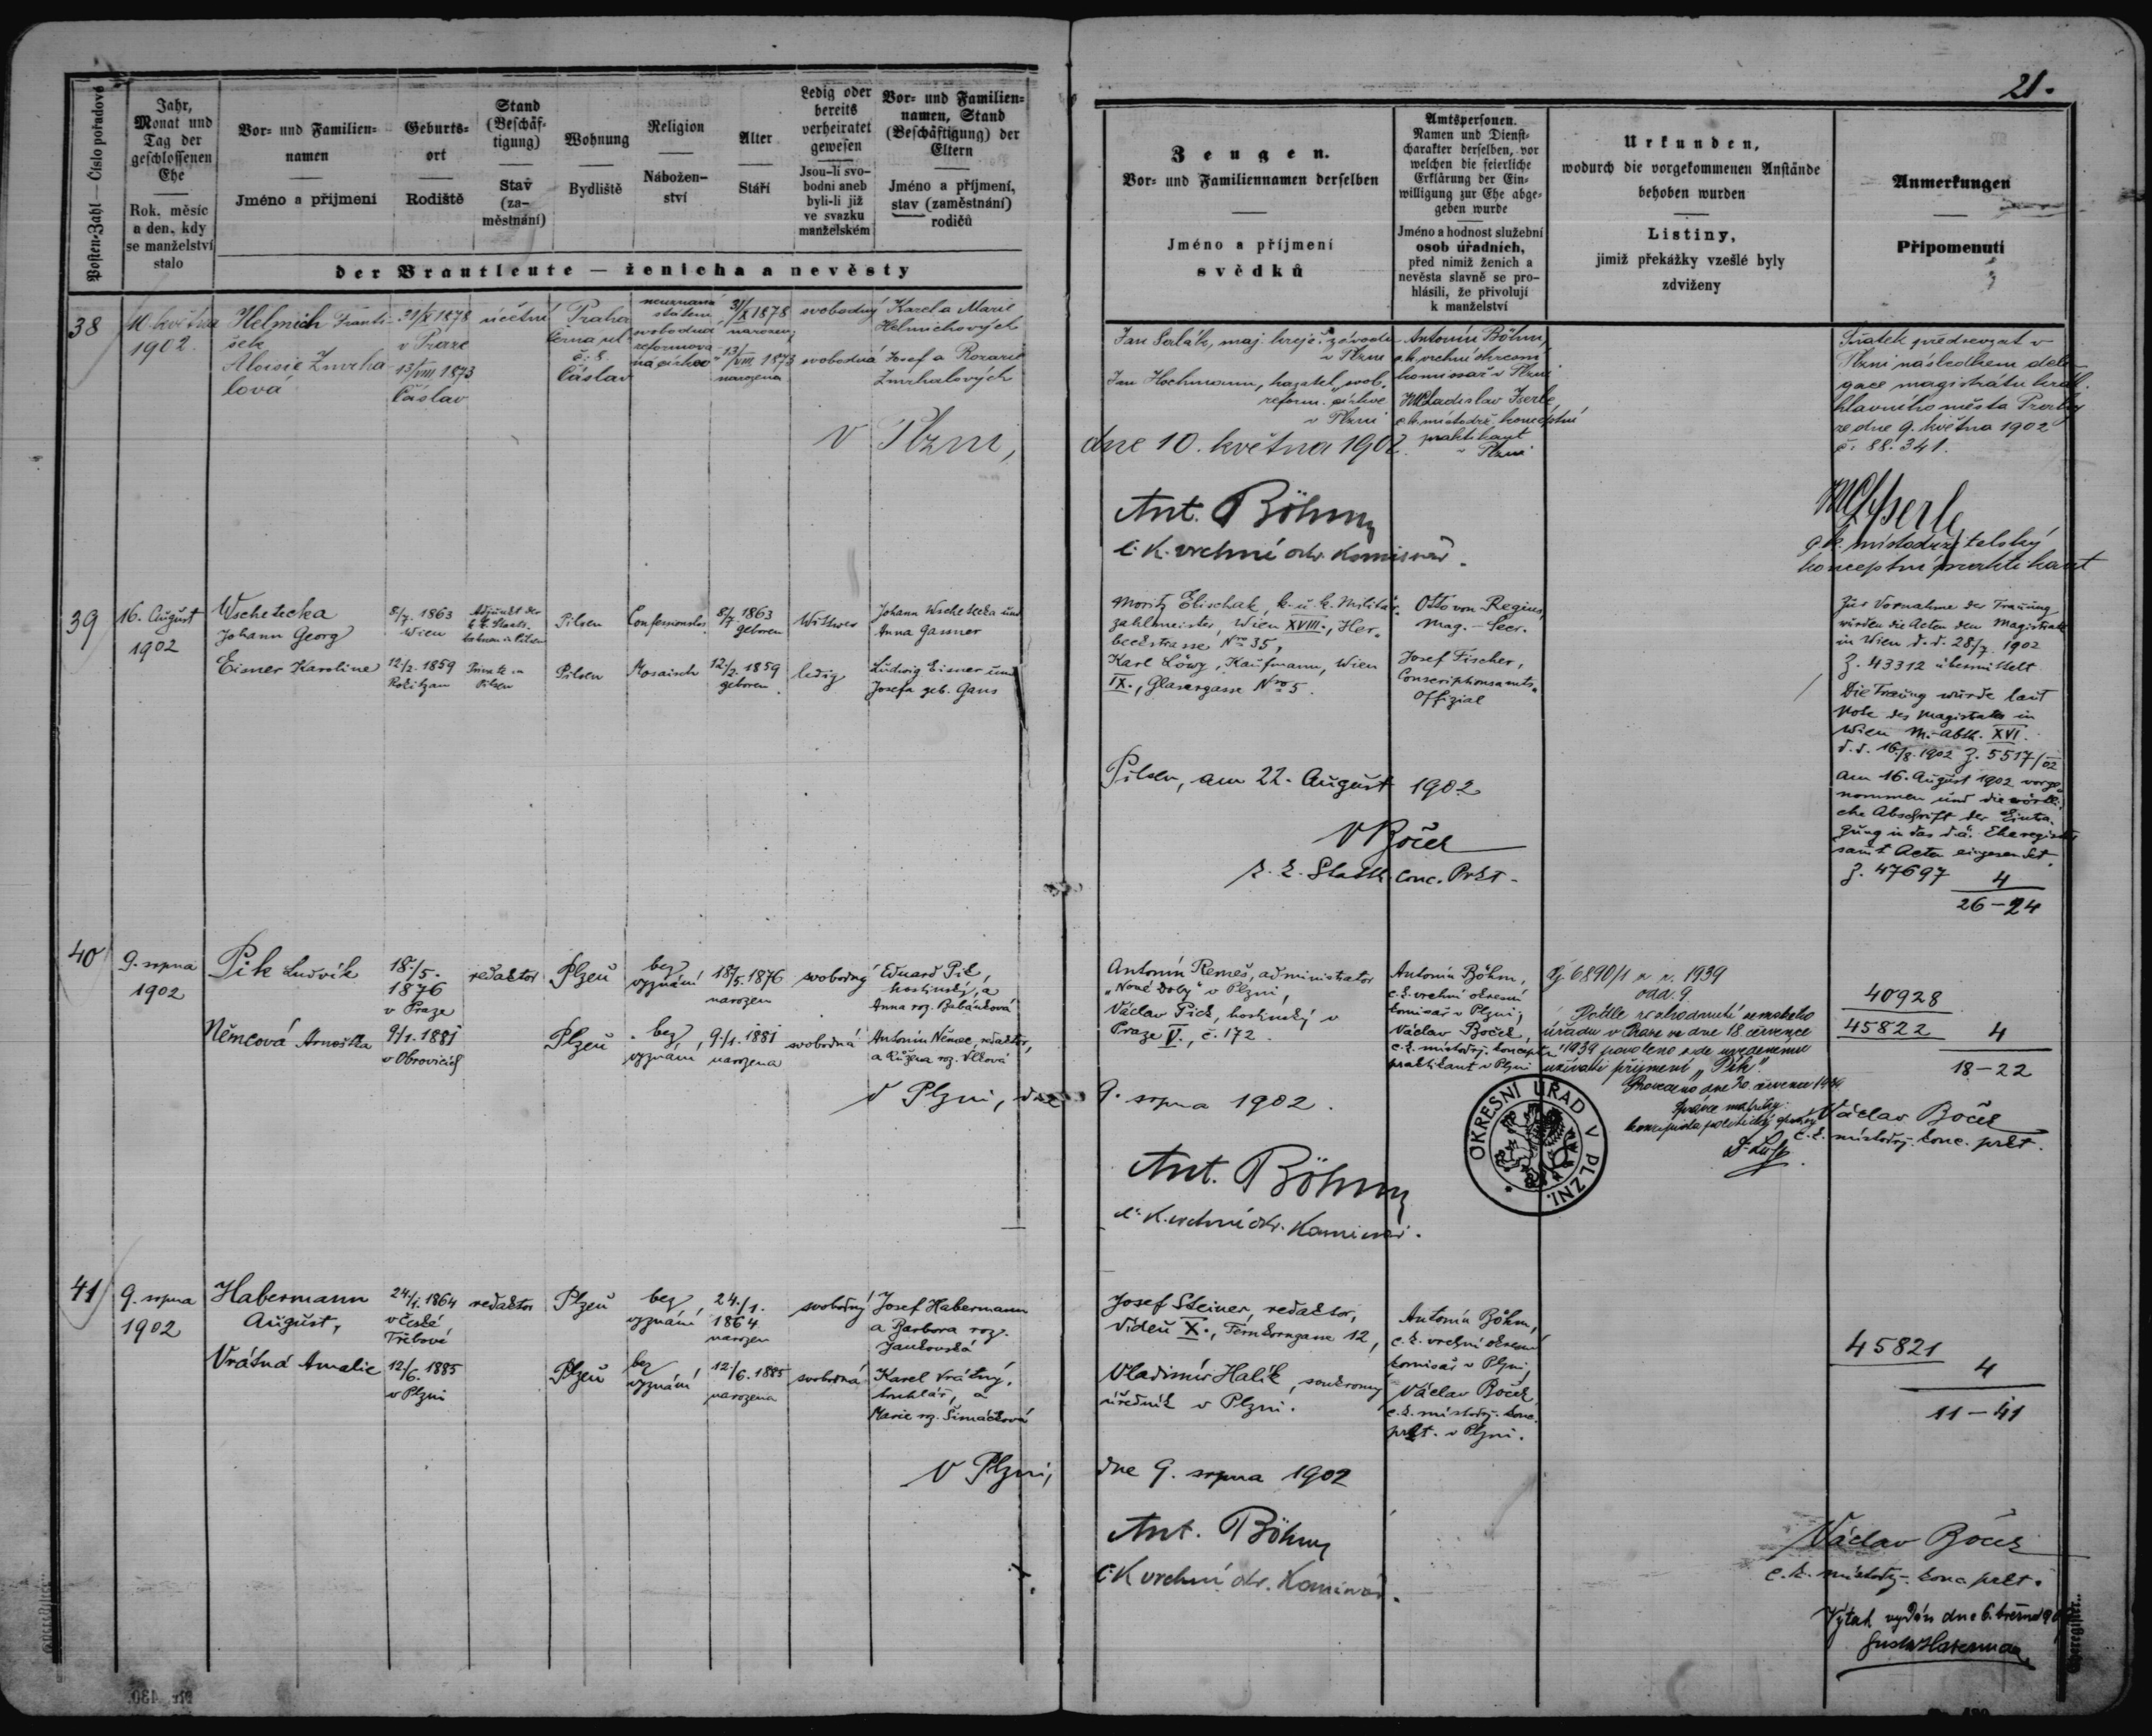 21.
Posten-Zahl — Číslo pořadové
Jahr,
Monat und
Tag der
geschlossenen
Ehe
Rok, měsíc
a den, kdy
se manželství
stalo
Vor- und Familien-
namen
Jméno a příjmení
Geburts-
ort
Rodiště
Stand
(Beschäf-
tigung)
Stav
(za-
městnání)
Wohnung
Bydliště
Religion
Nábožen-
ství
Alter
Stáří
Ledig oder
bereits
verheiratet
gewesen
Jsou-li svo-
bodni aneb
byli-li již
ve svazku
manželském
Vor- und Familien-
namen, Stand
(Beschäftigung) der
Eltern
Jméno a příjmení,
stav (zaměstnání)
rodičů
der Brautleute — ženicha a nevěsty
Zeugen.
Vor- und Familiennamen derselben
Jméno a příjmení
svědků
Amtspersonen.
Namen und Dienst-
charakter derselben, vor
welchen die feierliche
Erklärung der Ein-
willigung zur Ehe abge-
geben wurde
Jméno a hodnost služební
osob úřadních,
před nimiž ženich a
nevěsta slavně se pro-
hlásili, že přivolují
k manželství
Urkunden,
wodurch die vorgekommenen Anstände
behoben wurden
Listiny,
jimiž překážky vzešlé byly
zdviženy
Anmerkungen
Připomenutí
38
10. května
1902.
Helmich Franti-
šek
Aloisie Zmrha
lová
31/X 1878
v Praze
13/VIII 1873
Čáslav
účetní
Praha
Černá ul.
č: 8.
Čáslav
neuznaná
státem
svobodná
reformova
ná církev
31/X 1878
narozen
13/VIII 1873
narozena
svobodný
svobodná
Karel a Marie
Helmichových
Josef a Rozarie
Zmrhalových
Jan Serlák, maj. krejč. závodu
v Plzni
Jan Hochmann, kazatel svob.
reform. církve
v Plzni
Antonín Böhm,
c.k. vrchní okresní
komissař v Plzni
Ladislav
c.k. místodrž. konceptní
praktikant
v Plzni
Sňatek předsevzat v
Plzni následkem dele-
gace magistrátu král.
hlavního města Prahy
ze dne 9. května 1902
č: 88.341.
V Plzni,
dne 10. května 1902.
Ant. Böhm
c. k. vrchní okr. Komisař.
c.k. místodržitelský
konceptní praktikant
39
16. August
1902
Wschetecka
Johann Georg
Eisner Karoline
8/7. 1863
Wien
12/2. 1859
Rokitzan
Adjunkt der
k. k. Staats-
bahnen in Pilsen
Private in
Pilsen
Pilsen
Pilsen
Confessionslos
Mosaisch
8/7. 1863
geboren
12/2. 1859
geboren.
Witwer
ledig
Johann Wschetecka und
Anna Gassner
Ludwig Eisner und
Josefa geb. Gans
Moritz Elischak, k. u. k. Militär-
zahlmeister, Wien XVIII., Her-
beckstrasse Nro 35,
Karl Löwy, Kaufmann, Wien
IX., Glasergasse Nro 5.
Otto von Regius,
Mag. - Secr.
Josef Fischer,
Conscriptionsamts-
Offizial
Zur Vornahme der Trauung
wurden die Acten dem Magistrate
in Wien d. d. 28/7. 1902
Z. 43312 übermittelt.
Die Trauung wurde laut
Note des Magistrates in
Wien M.-Abth. XVI.
d. d. 16/8. 1902 Z. 5517/02
am 16. August 1902 vorge-
nommen und die wörtli-
che Abschrift der Eintra-
gung in das d.ä. Eheregister
samt Acten eingesendet.
Z. 47697 4
26 - 24
Pilsen, am 22. August 1902
V Boček
k. k. Statth. Conc. Prkt.
40
9. srpna
1902
Pik Ludvík
Němcová Arnoštka
18./5.
1876
v Praze
9/1. 1881
v Obrovicích
redaktor
Plzeň
Plzeň
bez
vyznání
bez
vyznání
18/5. 1876
narozen
9/1. 1881
narozena
svobodný
svobodná
Eduard Pik,
hostinský, a
Anna roz. Babánková
Antonín Němec, redaktor,
a Růžena roz. Vlková
Antonín Remeš, administrator
„Nové Doby" v Plzni,
Václav Pick, hostinský v
Praze V., č. 172.
Antonín Böhm,
c. k. vrchní okresní
komisař v Plzni,
Václav Boček,
c. k. místodrž. konceptní
praktikant v Plzni
Čj. 6890/1 z r. 1939
odd. 9
Podle rozhodnutí zemského
úřadu v Praze ze dne 18 července
1939 povoleno zde uvedenému
užívati příjmení „Pik".
Provedeno dne 20 července 1939.
Správce matriky:
40928
45822 4
18 - 22
V Plzni, dne
9. srpna 1902.
OKRESNÍ ÚŘAD V PLZNI.
Václav Boček
c. k. místodrž. konc. prkt.
Ant. Böhm
c. k. vrchní okr. Komisař.
41
9. srpna
1902
Habermann
August,
Vrátná Amalie
24/1. 1864
v České
Třebové
12./6. 1885
v Plzni
redaktor
Plzeň
Plzeň
bez
vyznání
bez
vyznání
24./1.
1864
narozen
12./6. 1885
narozena
svobodný
svobodná
Josef Habermann
a Barbora roz.
Jankovská
Karel Vrátný,
truhlář, a
Marie roz. Šimáčková
Josef Steiner, redaktor,
Vídeň X., Fernkorngasse 12,
Vladimír Halík, soukromý
úředník v Plzni.
Antonín Böhm,
c. k. vrchní okresní
komisař v Plzni,
Václav Boček
c. k. místodrž. konc.
prkt. v Plzni.
45821
4
11 - 41
V Plzni,
dne 9. srpna 1902
Ant. Böhm
c. k. vrchní okr. Komisař.
Václav Boček
c. k. místodrž. konc. prkt.
Výtah vydán dne 6. března